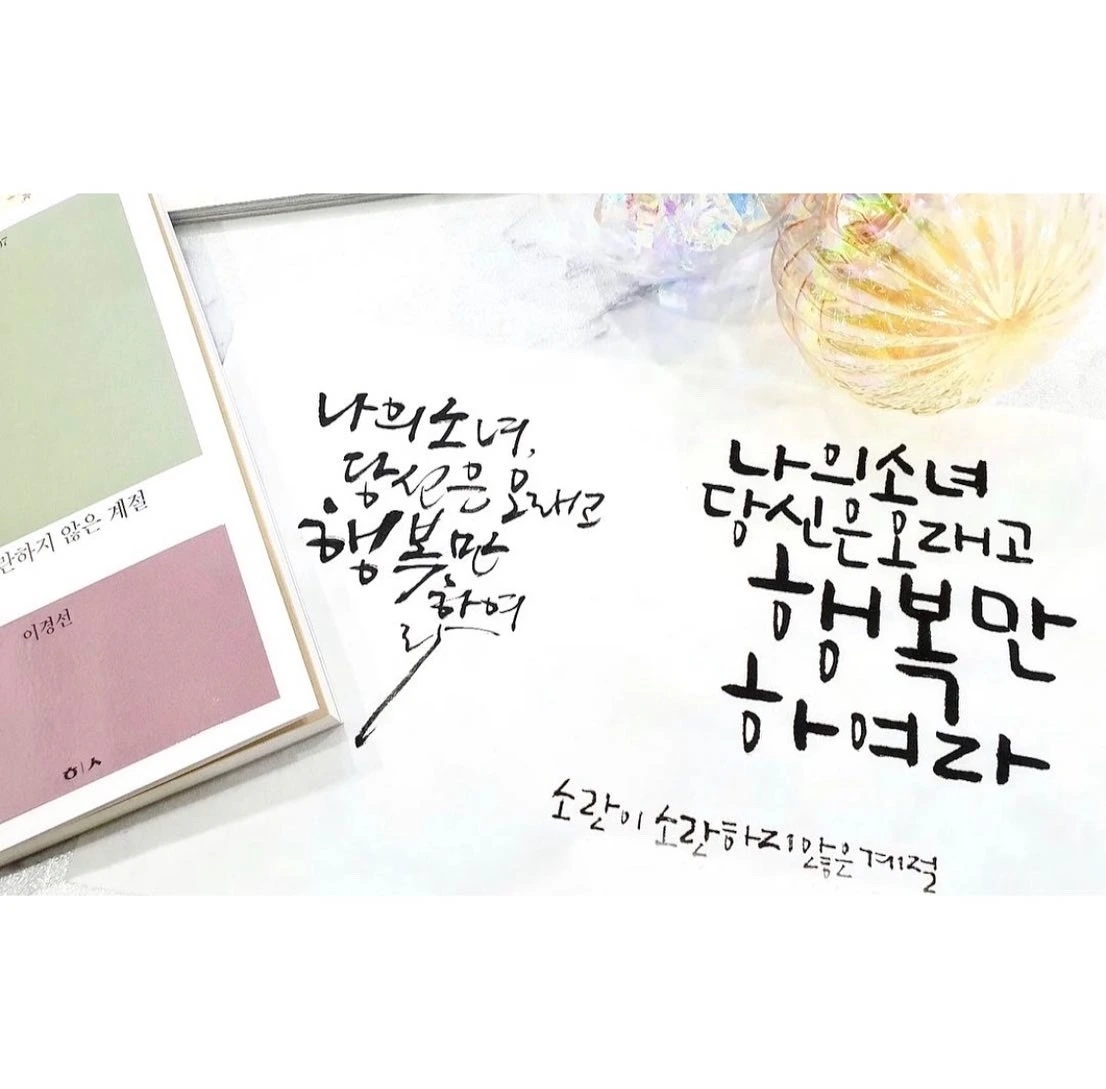 란하지 않은 계절
이경선
나의 소녀,
당신은 오래고
행복만
하여
라
나의 소녀
당신은 오래고
행복만
하여라
소란이 소란하지 않은 계절